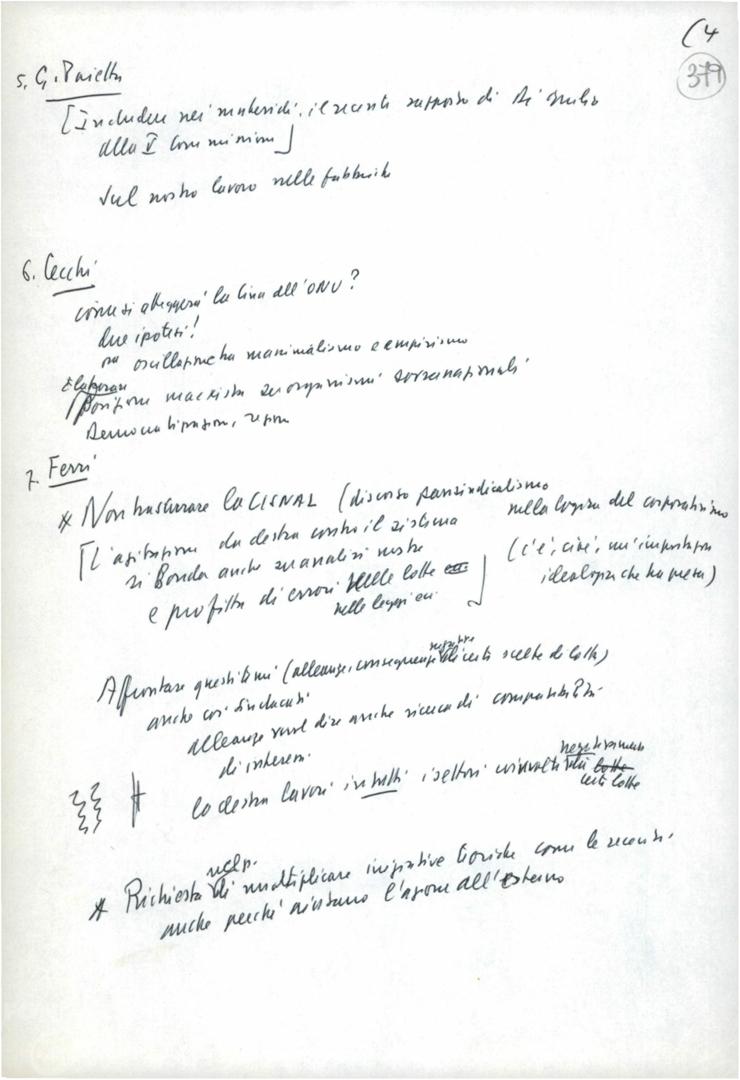 (4
379
5. G. Paietta
[Includere nei materiali, il recente rapporto di Di Giulio
alla V Commissione]
sul nostro lavoro nelle fabbriche
6. Cecchi
come si atteggerà la Cina all'ONU?
due ipotesi!
oscillazione tra massimalismo e empirismo
Elaborare
posizione marxista su organismi sovranazionali
Democratizzazione, regioni
7. Ferri
* Non trascurare la CISNAL (discorso pansindacalismo
nella logica del corporativismo
[L'agitazione da destra contro il sistema
(c'è, cioè, un'impostazione
si fonda anche su analisi nostre
ideologica che ha presa)
e profitta di errori nelle lotte
nelle leggi ecc]
Affrontare questi temi (alleanze, conseguenze negative di certe scelte di lotta)
anche coi sindacati
alleanze vuol dire anche ricerca di compatibilità
di interessi
la destra lavora in tutti i settori coinvolti negativamente da lotte
certe lotte
* Richiesta di moltiplicare iniziative teoriche come le recenti.
anche perché aiutano l'azione all'esterno